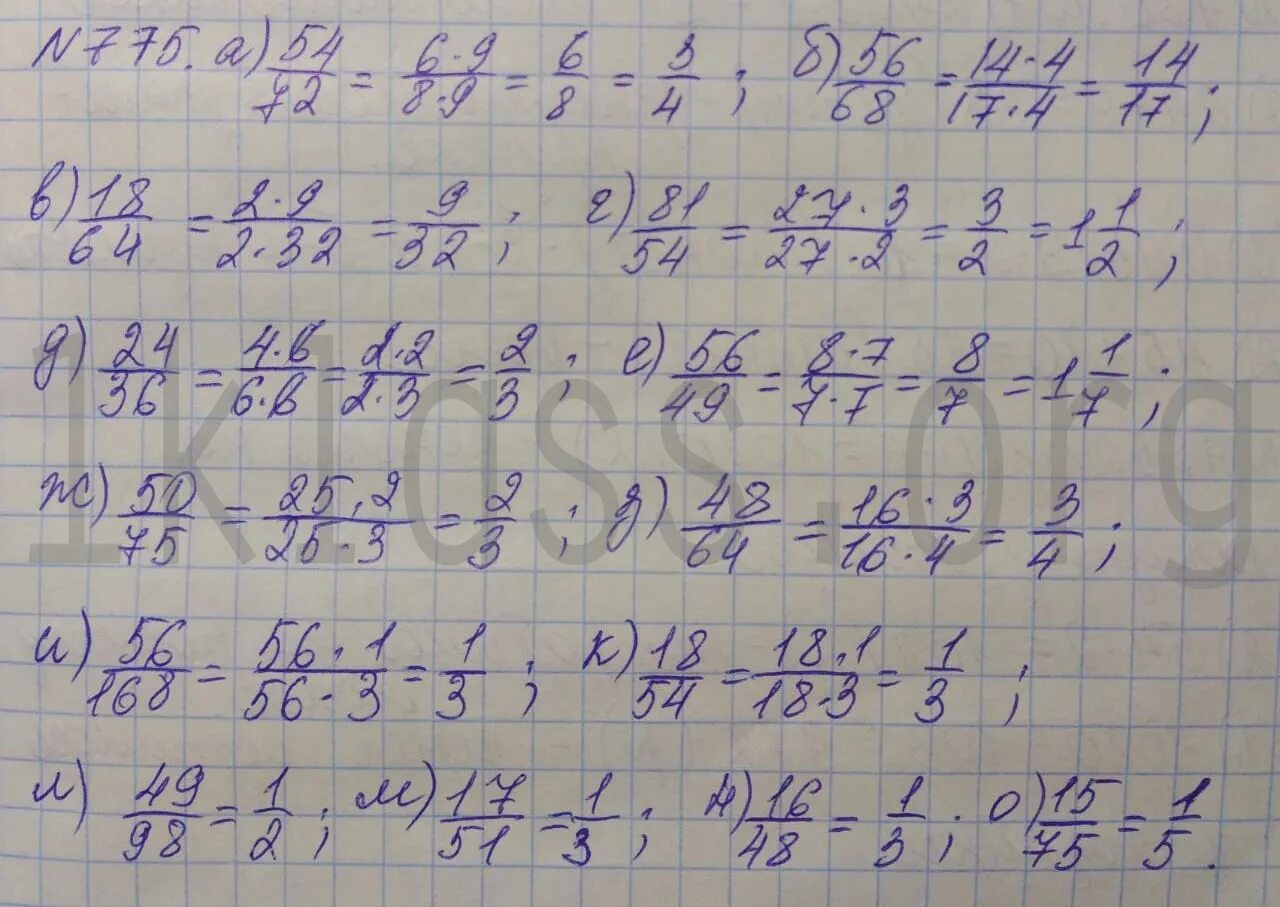 N775. а) 54/72 = 6·9/8·9 = 6/8 = 3/4 ; б) 56/68 = 14·4/17·4 = 14/17 ;
в) 18/64 = 2·9/2·32 = 9/32 ; г) 81/54 = 27·3/27·2 = 3/2 = 1 1/2 ;
д) 24/36 = 4·6/6·6 = 2·2/2·3 = 2/3 ; е) 56/49 = 8·7/7·7 = 8/7 = 1 1/7 ;
ж) 50/75 = 25·2/25·3 = 2/3 ; з) 48/64 = 16·3/16·4 = 3/4 ;
и) 56/168 = 56·1/56·3 = 1/3 ; к) 18/54 = 18·1/18·3 = 1/3 ;
л) 49/98 = 1/2 ; м) 17/51 = 1/3 ; н) 16/48 = 1/3 ; о) 15/75 = 1/5 .
1klass.org